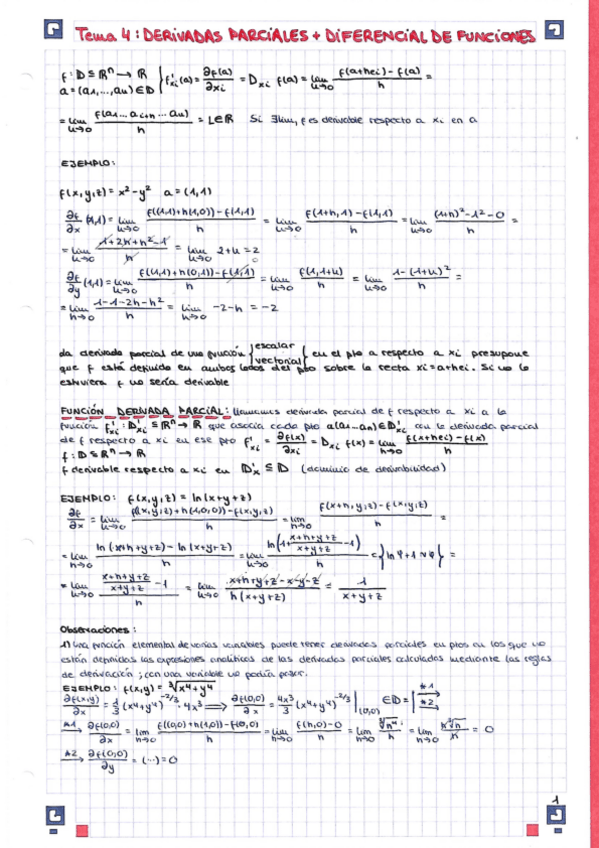 Tema 4: DERIVADAS PARCIALES + DIFERENCIAL DE FUNCIONES
f: D ⊆ ℝⁿ → ℝ } f'xi(a) = ∂f(a)/∂xi = Dxi f(a) = lim h→0 (f(a+hei) - f(a))/h =
a = (a1,...,an) ∈ D
= lim h→0 f(a1... ai+h ... an)/h = L∈ℝ Si ∃lim, f es derivable respecto a xi en a
EJEMPLO:
f(x,y,z) = x² - y² a = (1,1)
∂f/∂x (1,1) = lim h→0 (f((1,1)+h(1,0)) - f(1,1))/h = lim h→0 (f(1+h,1) - f(1,1))/h = lim h→0 ((1+h)² - 1² - 0)/h =
= lim h→0 (1+2h+h²-1)/h = lim h→0 2+h = 2
∂f/∂y (1,1) = lim h→0 (f(1,1)+h(0,1)) - f(1,1))/h = lim h→0 f(1,1+h)/h = lim h→0 (1-(1+h)²)/h =
= lim h→0 (1-1-2h-h²)/h = lim h→0 -2-h = -2
La derivada parcial de una función { escalar vectorial } en el pto a respecto a xi presupone
que f está definido en ambos lados del pto sobre la recta xi = a+hei. Si no lo
estuviera f no sería derivable
FUNCIÓN DERIVADA PARCIAL: llamamos derivada parcial de f respecto a xi a la
función f'xi : D'xi ⊆ ℝⁿ → ℝ que asocia cada pto a(a1...an) ∈ D'xi con la derivada parcial
de f respecto a xi en ese pto f'xi = ∂f(x)/∂xi = Dxi f(x) = lim h→0 (f(x+hei) - f(x))/h
f: D ⊆ ℝⁿ → ℝ
f derivable respecto a xi en D'x ⊆ D (dominio de derivabilidad)
EJEMPLO: f(x,y,z) = ln(x+y+z)
∂f/∂x = lim h→0 (f((x,y,z)+h(1,0,0)) - f(x,y,z))/h = lim h→0 (f(x+h,y,z) - f(x,y,z))/h =
= lim h→0 (ln(x+h+y+z) - ln(x+y+z))/h = lim h→0 ln(1+ (x+h+y+z)/(x+y+z) - 1)/h = {ln φ+1 ~ φ} =
= lim h→0 ((x+h+y+z)/(x+y+z) - 1)/h = lim h→0 (x+h+y+z-x-y-z)/(h(x+y+z)) = 1/(x+y+z)
Observaciones:
1) Una función elemental de varias variables puede tener derivadas parciales en ptos en los que no
están definidas las expresiones analíticas de las derivadas parciales calculadas mediante las reglas
de derivación; con una variable no podía pasar.
EJEMPLO: f(x,y) = ∛(x⁴+y⁴)
∂f(x,y)/∂x = 1/3 (x⁴+y⁴)^(-2/3) · 4x³ ⟹ ∂f(0,0)/∂x = 4x³/3 (x⁴+y⁴)^(-2/3) |(0,0) ∈ D = | *1→ *2→
*1→ ∂f(0,0)/∂x = lim h→0 (f((0,0)+h(1,0)) - f(0,0))/h = lim h→0 (f(h,0) - 0)/h = lim h→0 ∛h⁴/h = lim h→0 h∛h/h = 0
*2→ ∂f(0,0)/∂y = (...) = 0
1